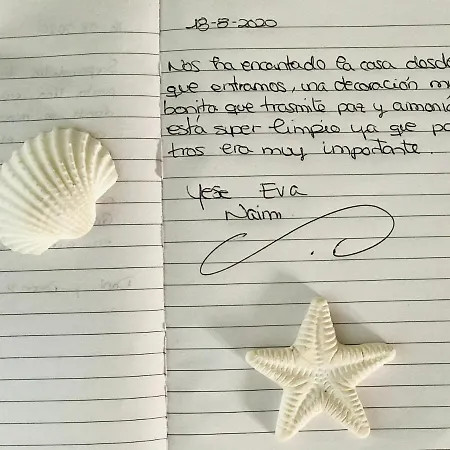 18-8-2020
Nos ha encantado la casa desde
que entramos, una decoración mu
bonita que trasmite paz y armonía
está super limpio ya que pa
tros era muy importante.
Yese Eva
Naimi